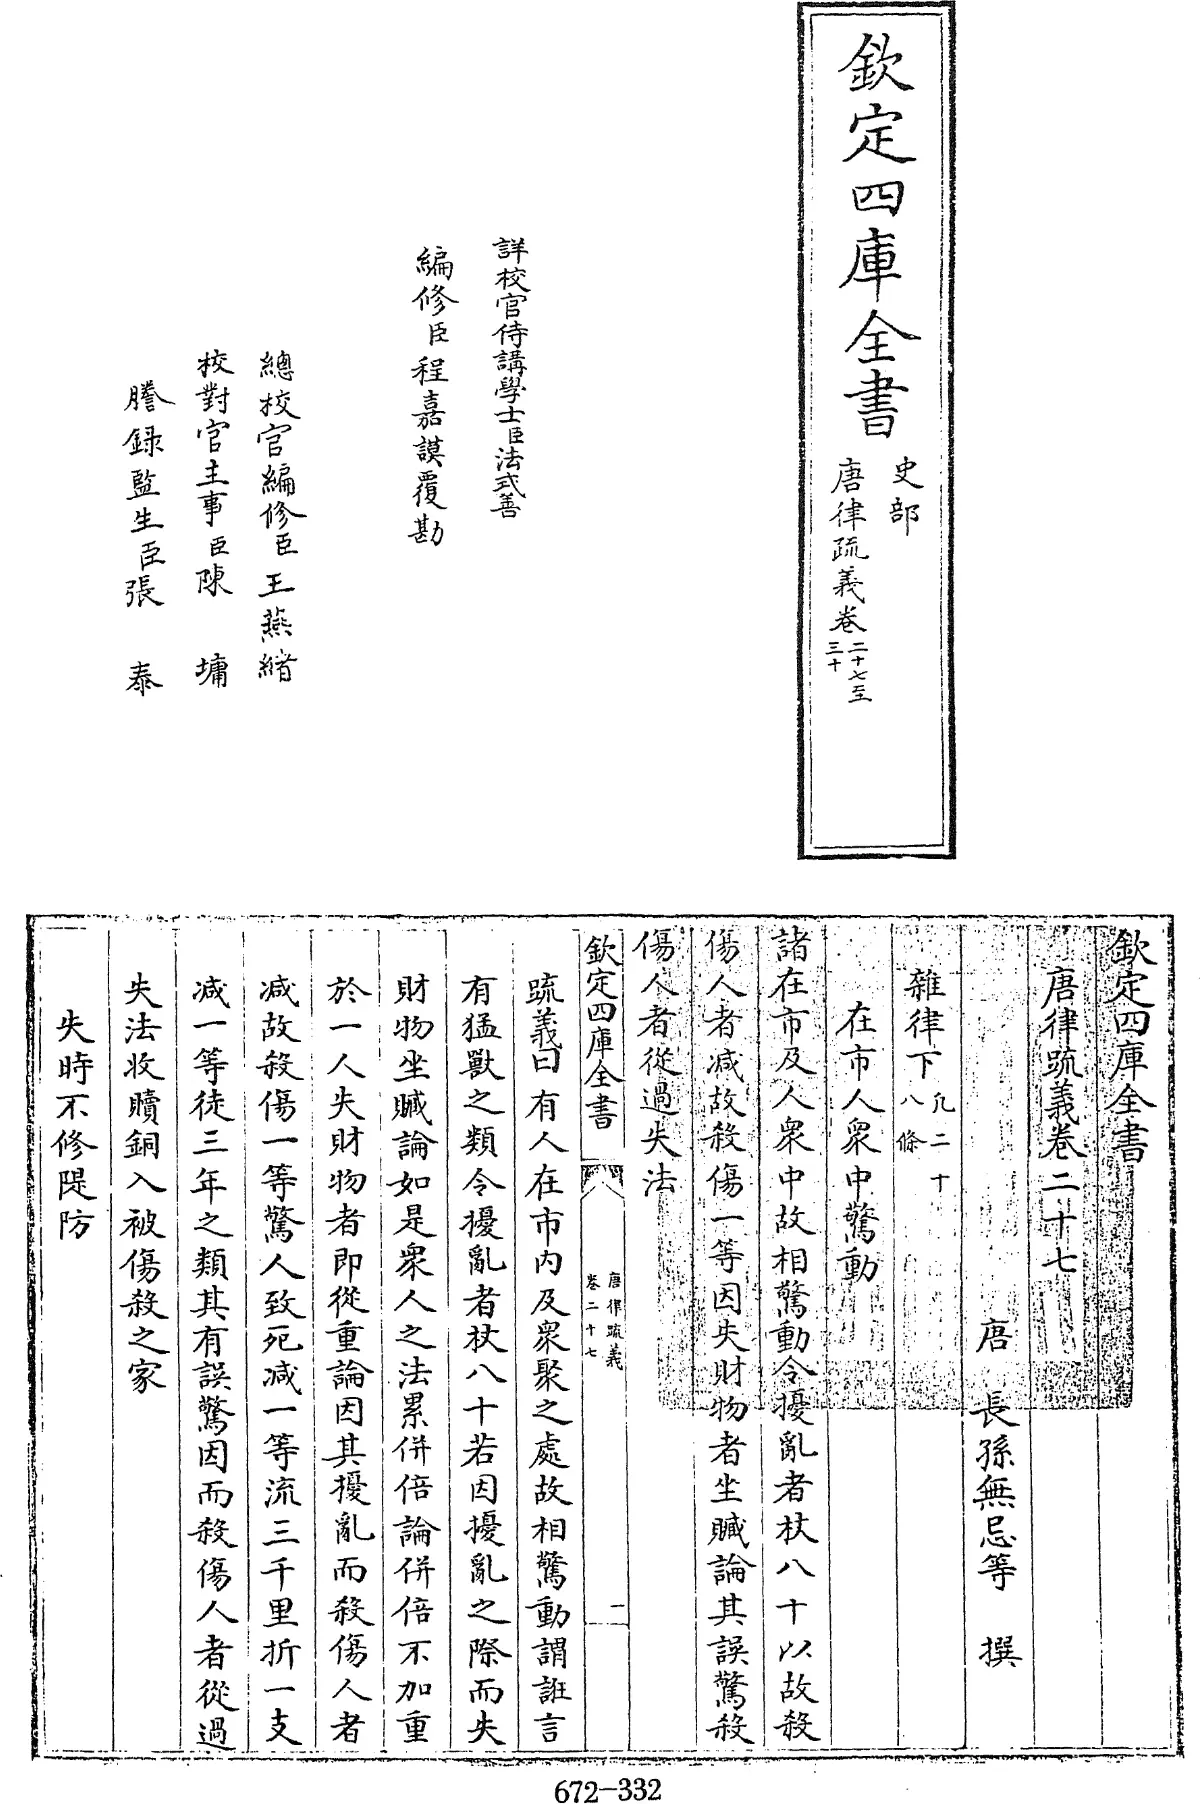 欽定四庫全書
史部
唐律疏義卷二十七至三十
詳校官侍講學士臣法式善
編修臣程嘉謨覆勘
總校官編修臣王燕緒
校對官主事臣陳墉
謄録監生臣張泰
欽定四庫全書
唐律疏義卷二十七
唐 長孫無忌等 撰
雜律下凡二十八條
在市人衆中驚動
諸在市及人衆中故相驚動令擾亂者杖八十以故殺
傷人者减故殺傷一等因失財物者坐贓論其誤驚殺
傷人者從過失法
欽定四庫全書
唐律疏義
卷二十七
一
疏義曰有人在市内及衆聚之處故相驚動謂誑言
有猛獸之類令擾亂者杖八十若因擾亂之際而失
財物坐贓論如是衆人之法累併倍論併倍不加重
於一人失財物者即從重論因其擾亂而殺傷人者
减故殺傷一等驚人致死减一等流三千里折一支
减一等徒三年之類其有誤驚因而殺傷人者從過
失法收贖銅入被傷殺之家
失時不修隄防
672-332